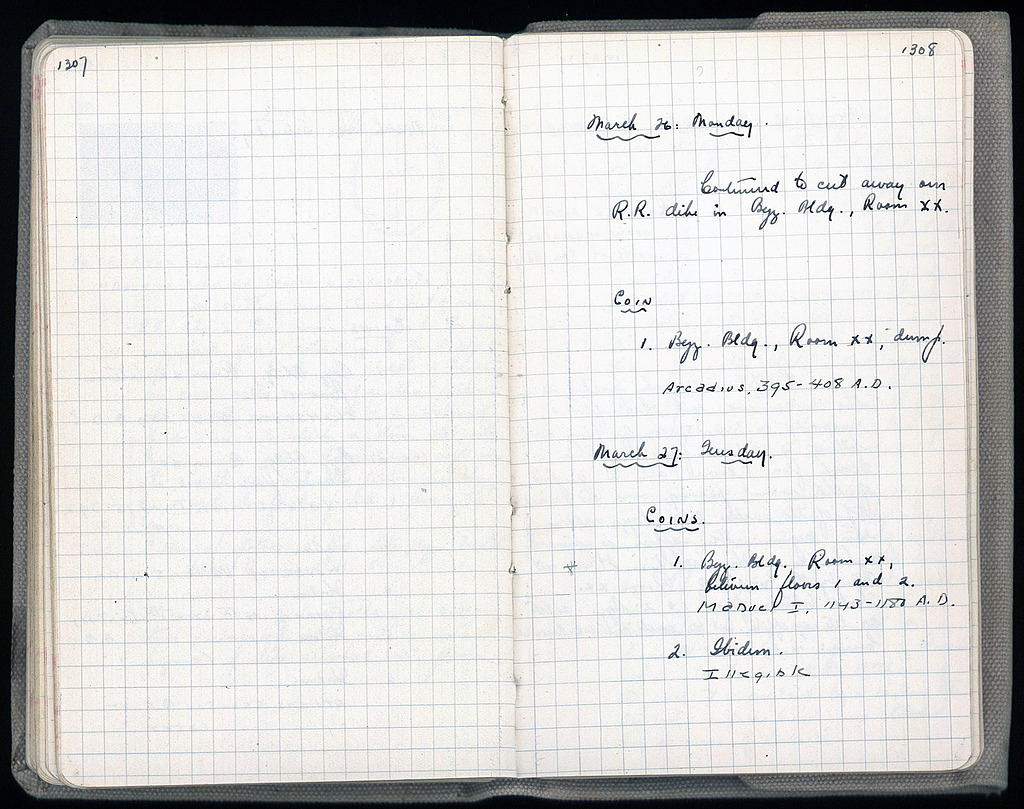 1307
1308
March 26: Monday.
Continued to cut away our
R.R. dike in Byz. Bldg., Room XX.
Coin
1. Byz. Bldg., Room XX, dump.
Arcadius, 395-408 A.D.
March 27: Tuesday.
Coins.
1. Byz. Bldg. Room XX,
between floors 1 and 2.
Manuel I, 1143-1180 A.D.
2. Ibidem.
Illegible